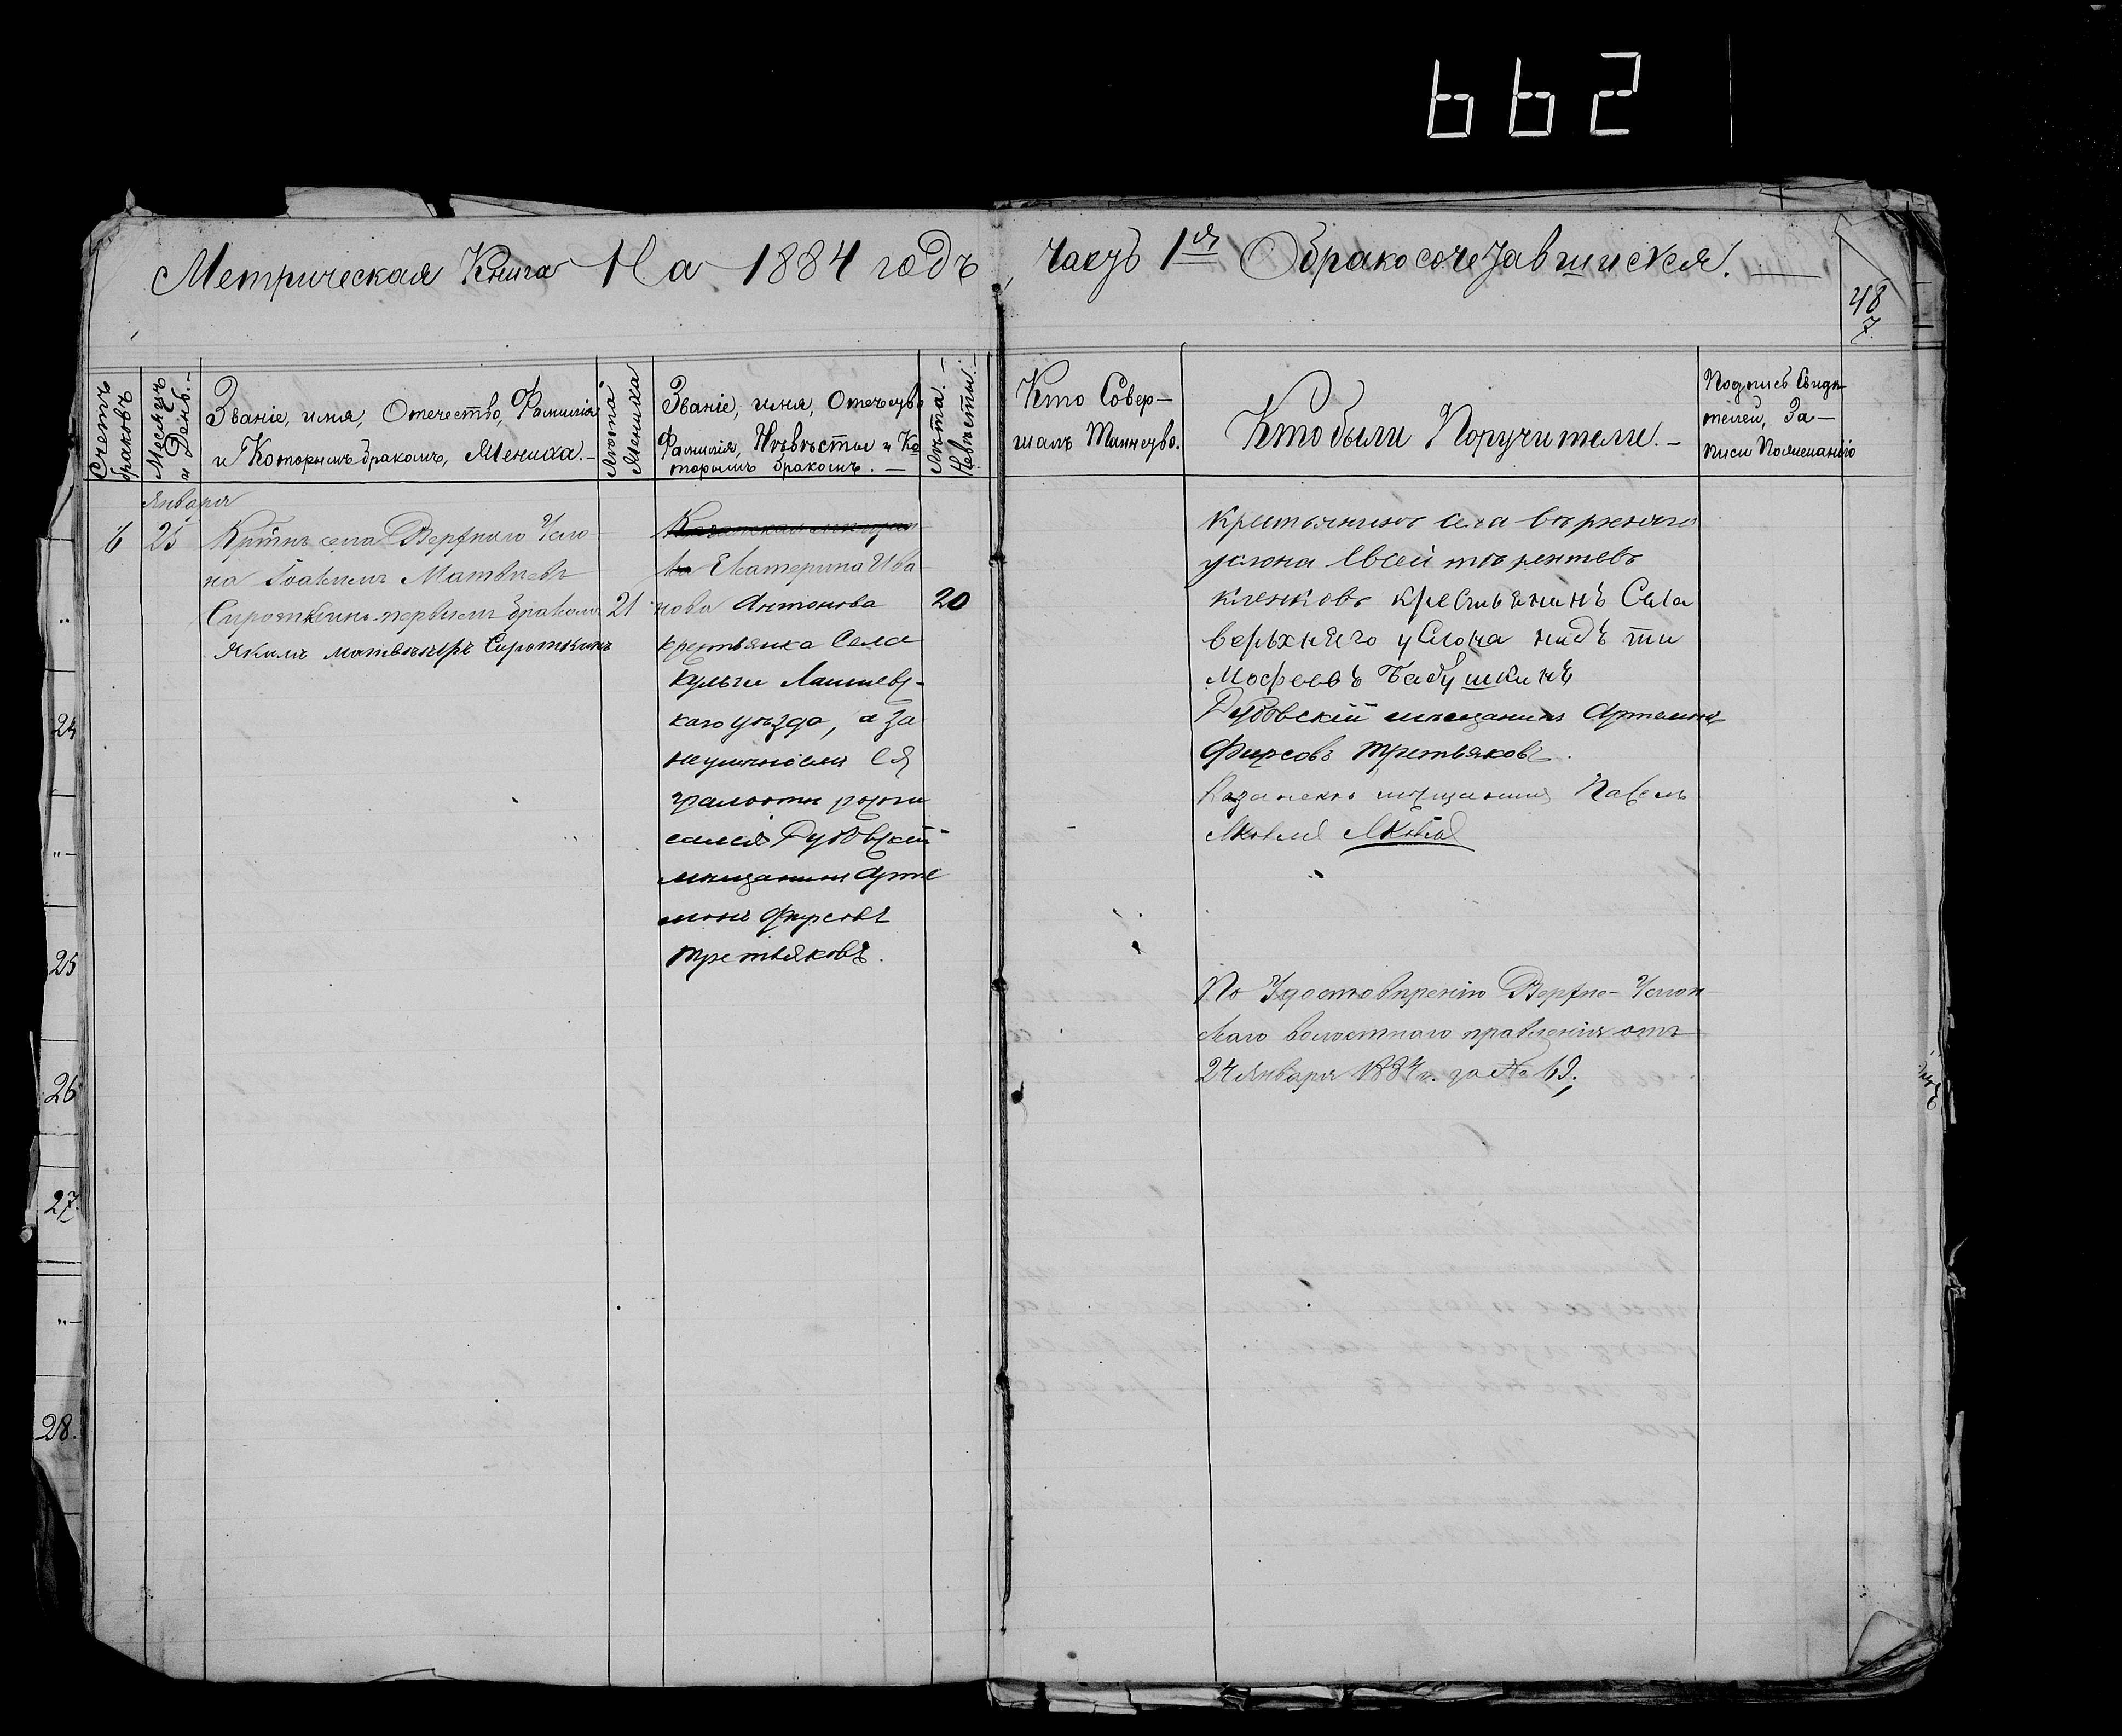 662
Метрическая Книга На 1884 годъ, часть 1я О бракосочетавшихся.
48
7
Счетъ браковъ
Месяцъ и День.
Званіе, имя, Отечество, Фамилія
и Которымъ бракомъ, Жениха.
Лѣта Жениха
Званіе, имя, Отечество
Фамилія, Невѣсты и Ко
торымъ бракомъ.
Лѣта Невѣсты.
Кто Совер-
шалъ Таинство.
Кто были Поручители.
Подпись Свидѣ-
телей, За-
писи По желанію
Января
6 25
Крстнъ села Верхняго Усло
на Іоакимъ Матвѣевъ
Сироткинъ первымъ бракомъ
Якимъ Матвѣевъ Сироткинъ
21
Казанская мещан
ка Екатерина Ива
нова Антонова
крестьянка Села
Кульги Лаишевс-
каго уѣзда, а за
неуменіемъ Ея
грамоты
Дубовскій
мещанинъ Арте
монъ Фирсовъ
Третьяковъ.
20
Крестьянинъ села верхняго
услона Евсей терентевъ
кленковъ крестьянинъ Села
верьхнего услона
Мофеевъ Бабушкинъ
Дубовскій мещанинъ Артемонъ
Фирсовъ Третьяковъ.
Казански мещанинъ Павелъ
Яковлев
По Удостовѣренію Верхне-Услон
скаго волостнаго правленія отъ
24 Января 1884 г. за № 69.
24
25
26
27
28.